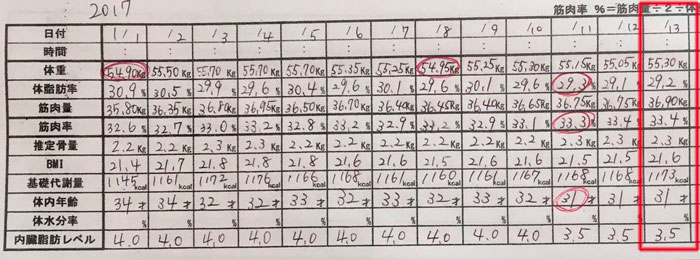 2017
筋肉率 %=筋肉量÷2÷体
日付 1/1 1/2 1/3 1/4 1/5 1/6 1/7 1/8 1/9 1/10 1/11 1/12 1/13
時間 : : : : : : : : : : : : :
体重 54.90Kg 55.50Kg 55.70Kg 55.70Kg 55.70Kg 55.35Kg 55.25Kg 54.95Kg 55.25Kg 55.30Kg 55.15Kg 55.05Kg 55.30Kg
体脂肪率 30.9% 30.5% 29.9% 29.6% 30.4% 29.6% 30.1% 29.6% 30.1% 29.6% 29.3% 29.1% 29.2%
筋肉量 35.80Kg 36.35Kg 36.80Kg 36.95Kg 36.50Kg 36.70Kg 36.40Kg 36.45Kg 36.40Kg 36.65Kg 36.75Kg 36.75Kg 36.90Kg
筋肉率 32.6% 32.7% 33.0% 33.2% 32.8% 33.2% 32.9% 33.2% 32.9% 33.1% 33.3% 33.4% 33.4%
推定骨量 2.2Kg 2.2Kg 2.3Kg 2.3Kg 2.2Kg 2.2Kg 2.2Kg 2.2Kg 2.2Kg 2.2Kg 2.3Kg 2.3Kg 2.3Kg
BMI 21.4 21.7 21.8 21.8 21.8 21.6 21.6 21.5 21.6 21.6 21.5 21.5 21.6
基礎代謝量 1145kcal 1161kcal 1172kcal 1176kcal 1166kcal 1168kcal 1161kcal 1160kcal 1161kcal 1167kcal 1168kcal 1168kcal 1173kcal
体内年齢 34才 34才 32才 32才 33才 32才 33才 32才 33才 32才 31才 31才 31才
体水分率 % % % % % % % % % % % % %
内臓脂肪レベル 4.0 4.0 4.0 4.0 4.0 4.0 4.0 4.0 4.0 4.0 3.5 3.5 3.5